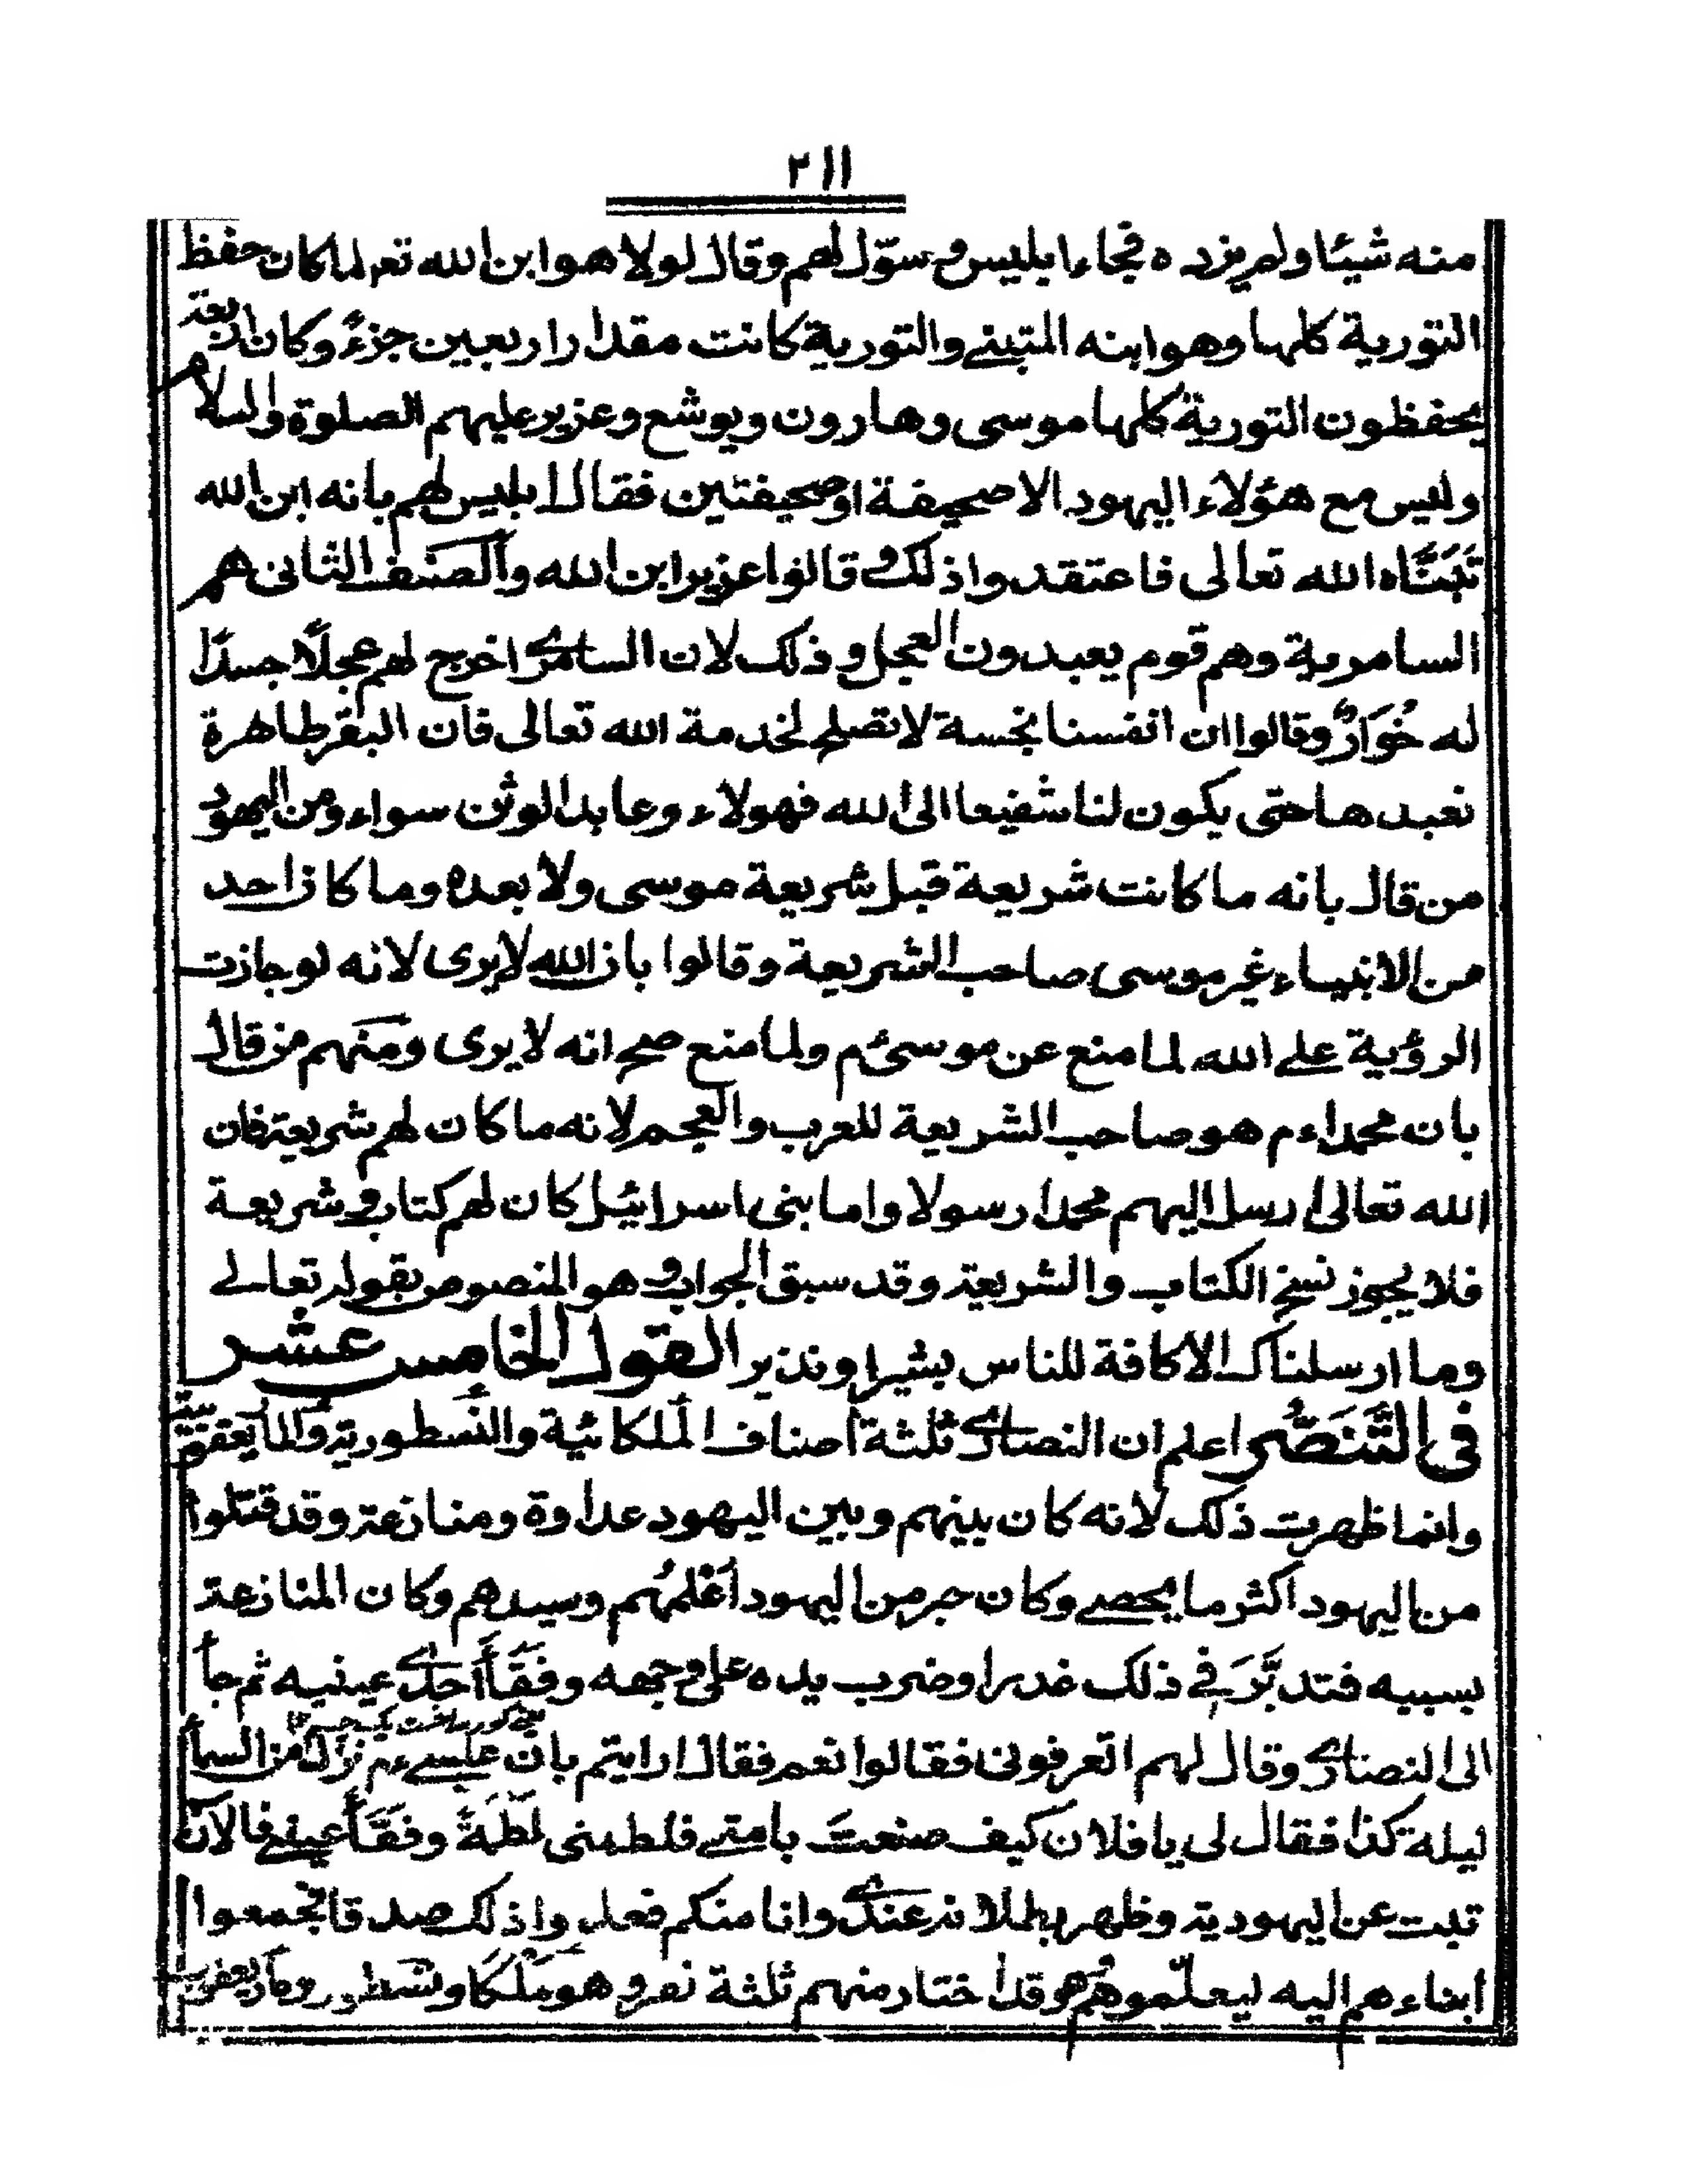 ٢١١
منه شيئا ولم يزده فجاء ابليس وسوّل لهم وقال لولا هو ابن الله تعم لما كان حفظ
التورية كلها وهو ابنه المتبنے والتورية كانت مقدار اربعين جزءٌ وكان اربعة
يحفظون التورية كلها موسى وهارون ويوشع وعزير عليهم الصلوة والسلام
وليس مع هؤلاء اليهود الا صحيفة او صحيفتين فقال ابليس لهم بانه ابن الله
تَبَنَّاه الله تعالى فاعتقدوا ذلك وقالوا عزير ابن الله والصنف الثانى هم
السامرية وهم قوم يعبدون العجل وذلك لان السامرى اخرج لهم عجلًا جسدًا
له خُوَارٌ وقالوا ان انفسنا نجسة لا تصلح لخدمة الله تعالى فان البقر طاهرة
نعبدها حتى يكون لنا شفيعا الى الله فهولاء وعابد الوثن سواء ومن اليهود
من قال بانه ما كانت شريعة قبل شريعة موسى ولا بعده وما كان احد
من الانبياء غير موسى صاحب الشريعة وقالوا بان الله لا يرى لانه لو جازت
الرؤية علے الله لما منع عن موسىٰ ءم ولما منع صح انه لا يرى ومنهم من قال
بان محمدا ءم هو صاحب الشريعة للعرب والعجم لانه ما كان لهم شريعة فان
الله تعالى ارسل اليهم محمدا رسولا واما بنى اسرائيل كان لهم كتاب وشريعة
فلا يجوز نسخ الكتاب والشريعة وقد سبق الجواب وهو المنصوص بقوله تعالے
وما ارسلناك الا كافة للناس بشيرا ونذيرا القول الخامس عشر
فى التَّنَصُّر اعلم ان النصارى ثلثة اصناف الملكائية والنسطورية والما يعقوبية
وانما ظهرت ذلك لانه كان بينهم وبين اليهود عداوة ومنازعة وقد قتلوا
من اليهود اكثر ما يحصے وكان حبر من اليهود اعلمهم وسيدهم وكان المنازعة
بسببه فتدبَّرَ فى ذلك غدرا وضرب يده على وجهه وفقأ احدى عينيه ثم جأ
الى النصارى وقال لهم اتعرفونى فقالوا نعم فقال ارايتم بان عيسے ءم نزل من السمأ
ليلة كذا فقال لى يا فلان كيف صنعت بامتے فلطمنى لطمةً وفقأ عينے فالآن
تبت عن اليهودية وظهر بطلانه عندى وانا منكم فعلوا ذلك صدقا فجمعوا
ابناءهم اليه ليعلّموهُم وقد اختار منهم ثلثة نفر وهو ملكا ونسطور وماريعقوب